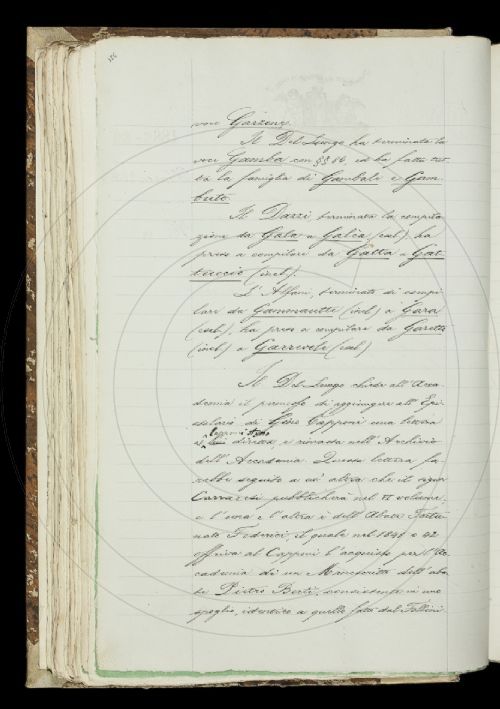 voce Garzone.
Il Del Lungo ha terminata la
voce Gamba con §§ 86 ed ha fatta tut-
ta la famiglia di Gambale e Gam-
buto.
Il Dazzi, terminata la compila-
zione da Gala a Galèa (escl.), ha
preso a compilare da Gatta a Gat-
tuccio (incl.).
L'Alfani, terminato di compi-
lare da Gammautte (incl.) a Gara
(escl.), ha preso a compilare da Garetto
(incl.) a Garrevole (escl.)
Il Del Lungo chiede all'Acca-
demia il permesso di aggiungere all'Epi-
stolario di Gino Capponi una lettera
a diretta, e trovata nell'Archivio
dell'Accademia. Questa lettera fa-
rebbe seguito a un'altra che il signor
Carraresi pubblicherà nel VI volume,
e l'una e l'altra è dell'Abate Fortu-
nato Federici, il quale nel 1841 e 42
offriva al Capponi l'acquisto per l'Ac-
cademia di un Manoscritto dell'aba-
te Pietro Berti, consistente in uno
spoglio, identico a quello fatto dal Follini